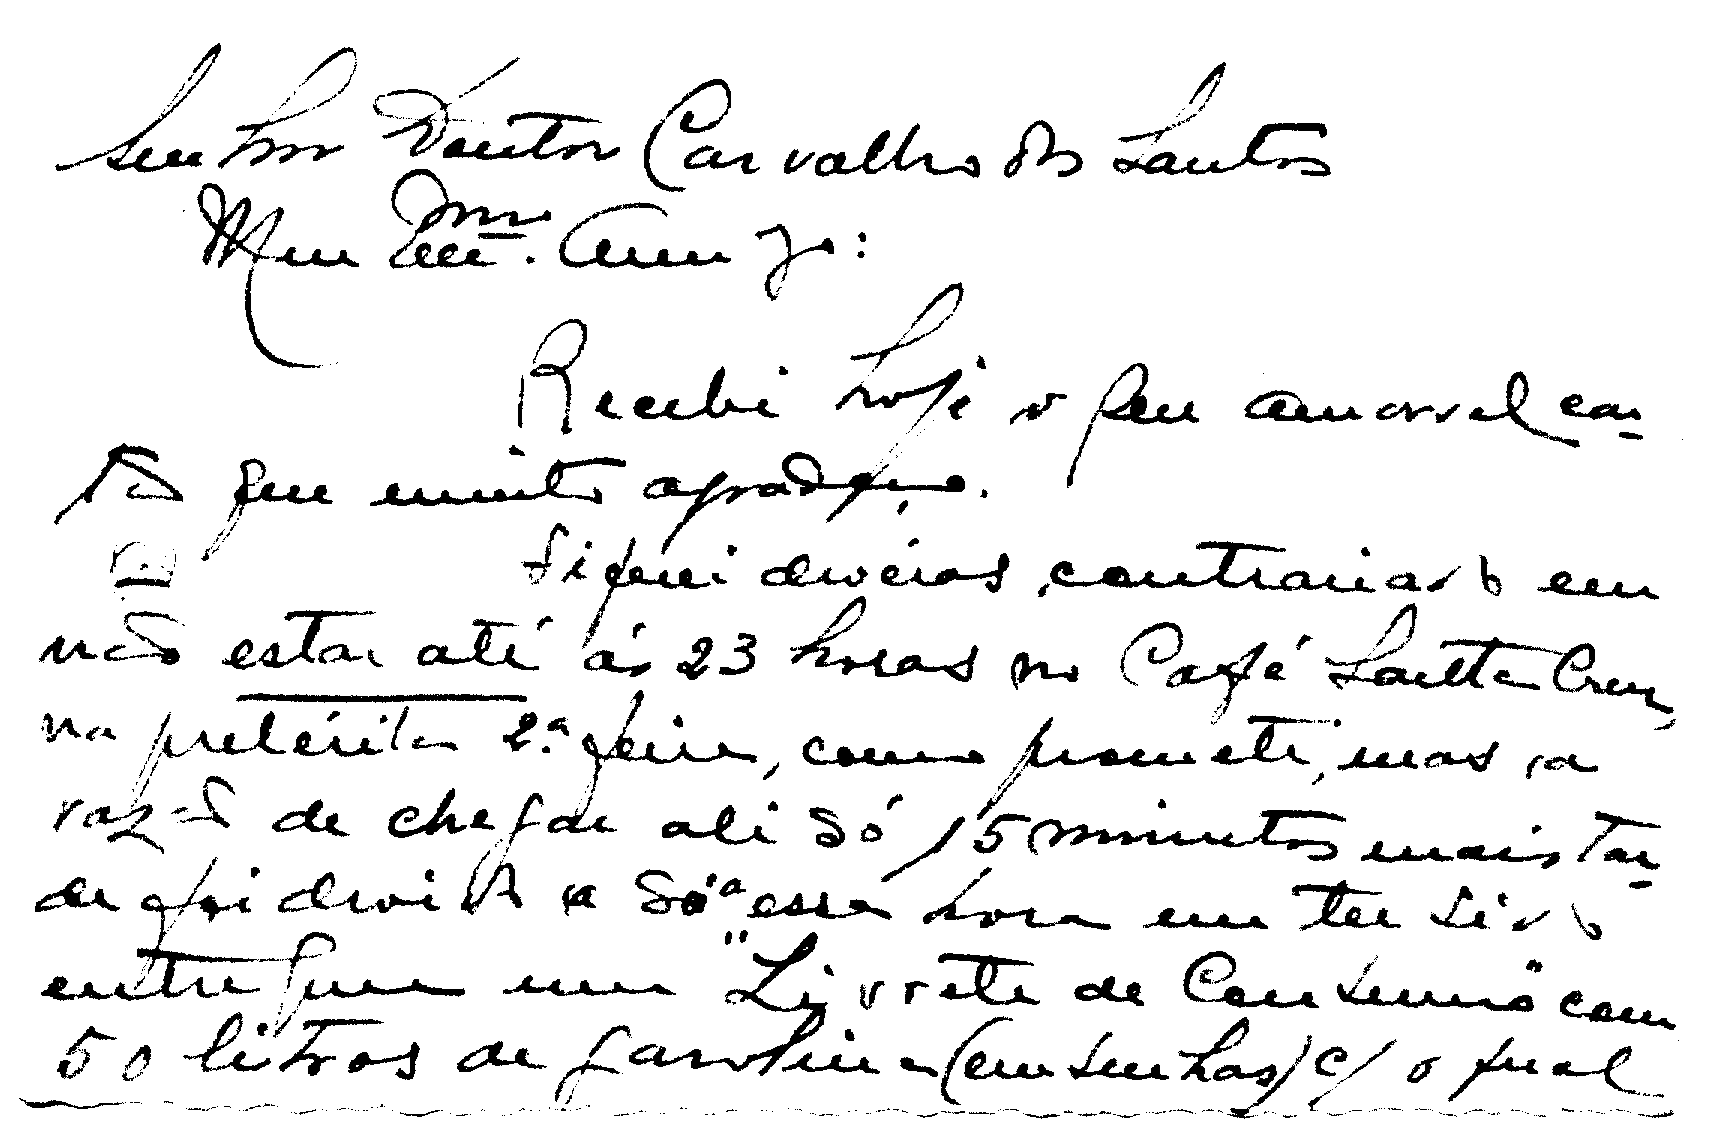 Senhor Doutor Carvalho dos Santos
Meu Exmo. Amigo:
Recebi hoje o seu amavel car-
tão que muito agradeço.
Fiquei deveras contrariado em
não estar até ás 23 horas no Café Santa Cruz,
na pretérita 2.ª feira, como prometi, mas a
razão de chegar ali só 15 minutos mais tar-
de foi devido a só a essa hora me ter sido
entregue um "Livrete de Consumo" com
50 litros de gasolina (em senhas) c/ o qual